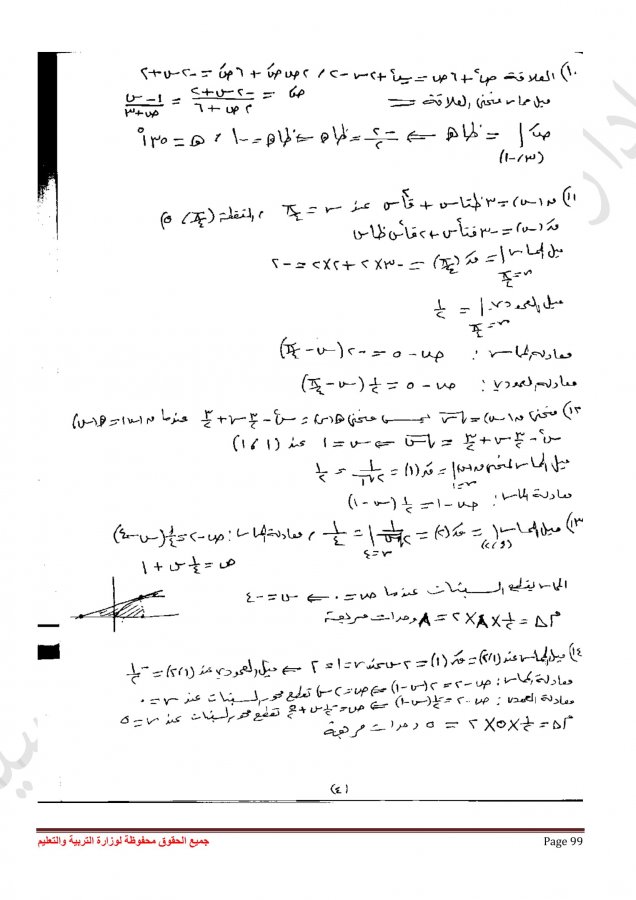 ١٠) العلاقة ص٢ + ٦ص = س٢ + ٢س - ٢ ، ٢ص صَ + ٦صَ = -٢س + ٢
ميل مماس منحنى العلاقة = صَ = (-٢س + ٢)/(٢ص + ٦) = (١ - س)/(ص + ٣)
صَ | = ظا هـ ⇐ -٢/٢ = ظا هـ ⇐ ظا هـ = -١ ، هـ = ١٣٥°
(٣، -١)
١١) ق(س) = ٣ظتاس + قا٢س عند س = π/٤ ، النقطة (π/٤ ، ٥)
قَ(س) = -٣قتا٢س + ٢قا٢س ظاس
ميل المماس | = قَ(π/٤) = -٣×٢ + ٢×٢ = -٢
س = π/٤
ميل العمودي | = ١/٢
س = π/٤
معادلة المماس : ص - ٥ = -٢(س - π/٤)
معادلة العمودي : ص - ٥ = ١/٢(س - π/٤)
١٢) منحنى ق(س) = √س يمس منحنى هـ(س) = س٢ - ٣/٢ س + ٣/٢ عندما ق(س) = هـ(س)
س٢ - ٣/٢ س + ٣/٢ = √س ⇐ س = ١ عند (١ ، ١)
ميل المماس لمنحنى ق(س) | = قَ(١) = ١/(٢√١) = ١/٢
س = ١
معادلة المماس : ص - ١ = ١/٢ (س - ١)
١٣) ميل المماس | = قَ(٤) = ١/(٢√س) | = ١/٤ ، معادلة المماس : ص - ٢ = ١/٤(س - ٤)
س = ٤
ص = ١/٤ س + ١
المماس يقطع السينات عندما ص = ٠ ⇐ س = -٤
م Δ = ١/٢ × ٨ × ٢ = ٨ وحدات مربعة
١٤) ميل المماس عند (١/٢) = قَ(١) = ٢س عند س = ١ = ٢ ⇐ ميل العمودي عند (١/٢) = -١/٢
معادلة المماس : ص - ٢ = ٢(س - ١) ⇐ ص = ٢س تقطع محور السينات عند س = ٠
معادلة العمودي : ص - ٢ = -١/٢(س - ١) ⇐ ص = -١/٢ س + ٥/٢ تقطع محور السينات عند س = ٥
م Δ = ١/٢ × ٥ × ٢ = ٥ وحدات مربعة
(٤)
جميع الحقوق محفوظة لوزارة التربية والتعليم
Page 99